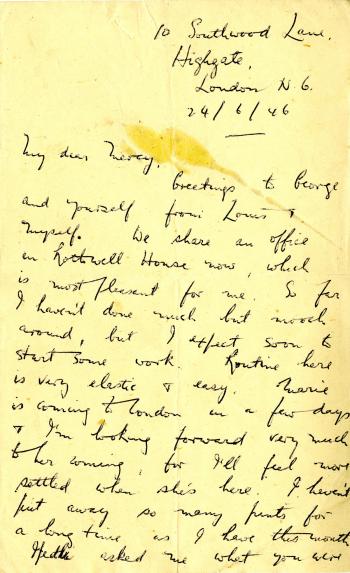 10 Southwood Lane,
Highgate,
London N.6.
24/6/46
My dear Mercy,
Greetings to George
and yourself from Louis &
myself. We share an office
in Rothwell House now, which
is most pleasant for me. So far
I haven't done much but mooch
around, but I expect soon to
start some work. Routine here
is very elastic & easy. Marie
is coming to London in a few days
& I'm looking forward very much
to her coming, for I'll feel more
settled when she's here. I haven't
put away so many pints for
a long time as I have this month
asked me what you were